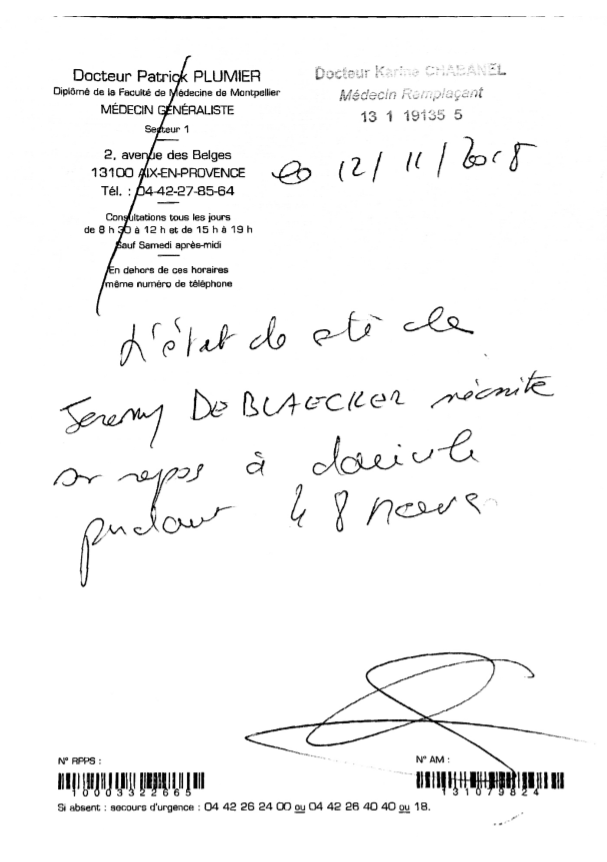 Docteur Patrick PLUMIER
Diplômé de la Faculté de Médecine de Montpellier
MÉDECIN GÉNÉRALISTE
Secteur 1
2, avenue des Belges
13100 AIX-EN-PROVENCE
Tél. : 04-42-27-85-64
Consultations tous les jours
de 8 h 30 à 12 h et de 15 h à 19 h
Sauf Samedi après-midi
En dehors de ces horaires
même numéro de téléphone
Docteur Karine CHABANEL
Médecin Remplaçant
13 1 19135 5
le 12/11/2018
L'état de sté de
Jeremy DE BLAECKER nécessite
un repos à domicile
pendant 48 heures
N° RPPS :
10003322665
N° AM :
131079824
Si absent : secours d'urgence : 04 42 26 24 00 ou 04 42 26 40 40 ou 18.